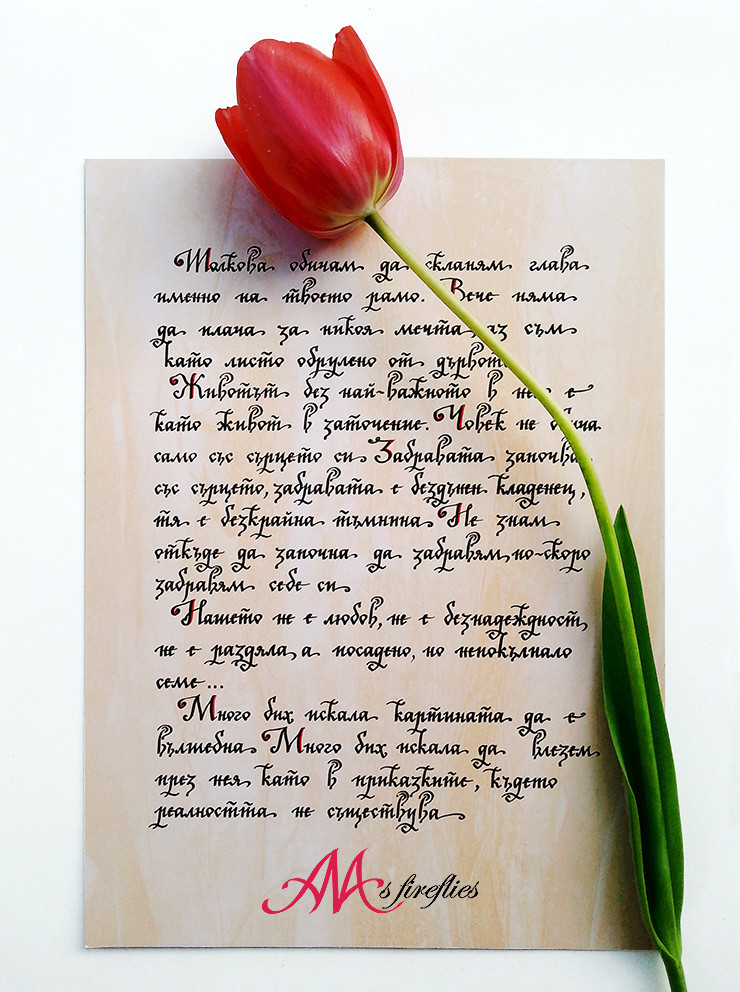 Толкова обичам да скланям глава
именно на твоето рамо. Вече няма
да плача за никоя мечта, аз съм
като листо обрулено от дървото.
Животът без най-важното в него е
като живот в заточение. Човек не обича
само със сърцето си. Забравата започва
със сърцето, забравата е бездънен кладенец,
тя е безкрайна тъмнина. Не знам
откъде да започна да забравям, по-скоро
забравям себе си.
Нашето не е любов, не е безнадеждност,
не е раздяла, а посадено, но непокълнало
семе...
Много бих искала картината да е
вълшебна. Много бих искала да влезем
през нея като в приказките, където
реалността не съществува.
AMs fireflies